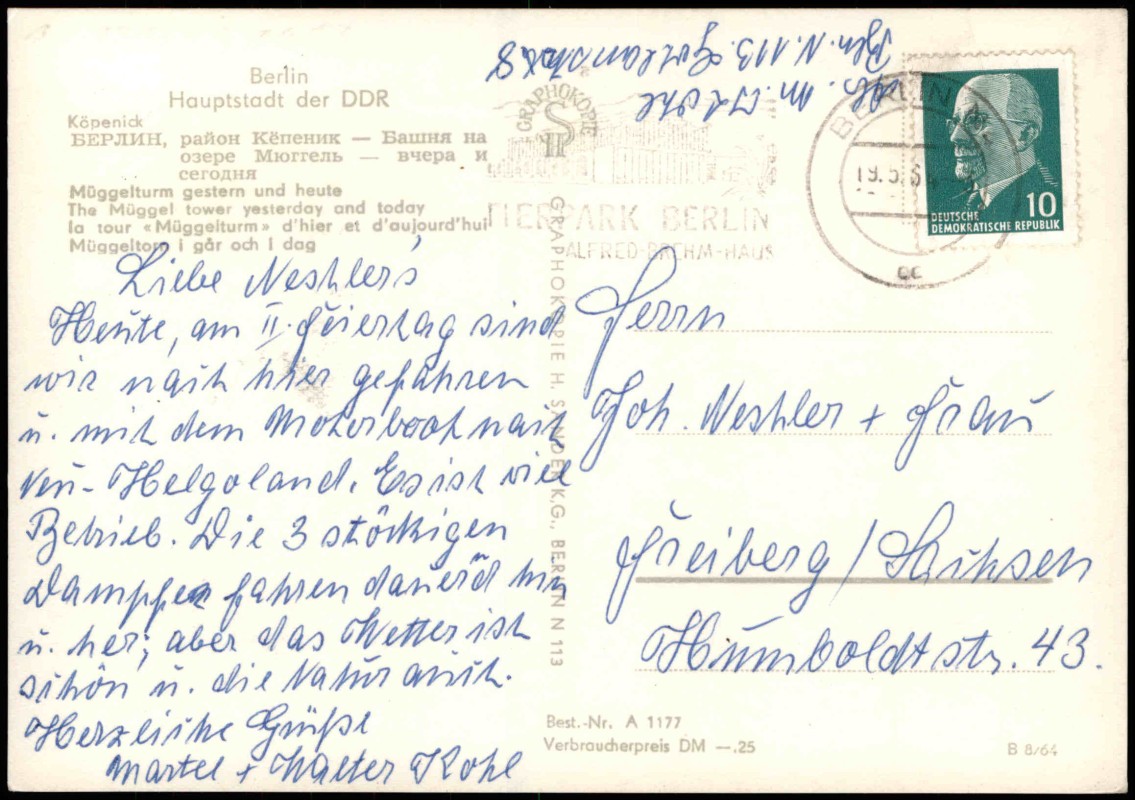 Berlin
Hauptstadt der DDR
Köpenick
БЕРЛИН, район Кёпеник — Башня на
озере Мюггель — вчера и
сегодня
Müggelturm gestern und heute
The Müggel tower yesterday and today
la tour «Müggelturm» d'hier et d'aujourd'hui
Müggeltorn i går och i dag
Liebe Neshler's
Heute, am II. Feiertag sind
wir nach hier gefahren
u. mit dem Motorboot nach
Neu-Helgoland. Es ist viel
Betrieb. Die 3 stöckigen
Dampfer fahren dauernd hin
u. her, aber das Wetter ist
schön u. die Natur auch.
Herzliche Grüße
Martel + Walter Kohl
GRAPHOKOPIE
GRAPHOKOPIE H. SANDER K.G., BERLIN N 113
TIERPARK BERLIN
ALFRED-BREHM-HAUS
BERLIN
19.5.
cc
DEUTSCHE
DEMOKRATISCHE REPUBLIK
10
Abs. M. Kohl
Bln. N. 113.
Herrn
Joh. Neshler + Frau
Freiberg/Sachsen
Humboldtstr. 43.
Best.-Nr. A 1177
Verbraucherpreis DM —.25
B 8/64